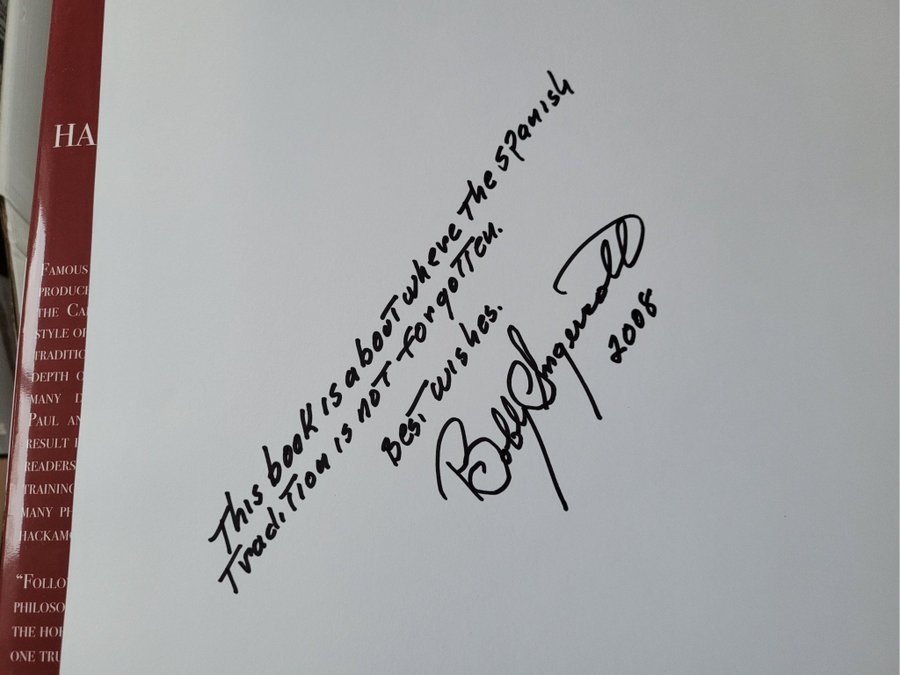 HA
FAMOUS
PRODUCE
THE CA
STYLE OF
TRADITIO
DEPTH O
MANY D
PAUL AN
RESULT I
READERS
TRAINING
MANY PH
HACKAMO
"FOLLO
PHILOSO
THE HO
ONE TRU
This book is about where the Spanish
Tradition is not forgotten.
Best wishes.
Bobby Ingersoll
2008